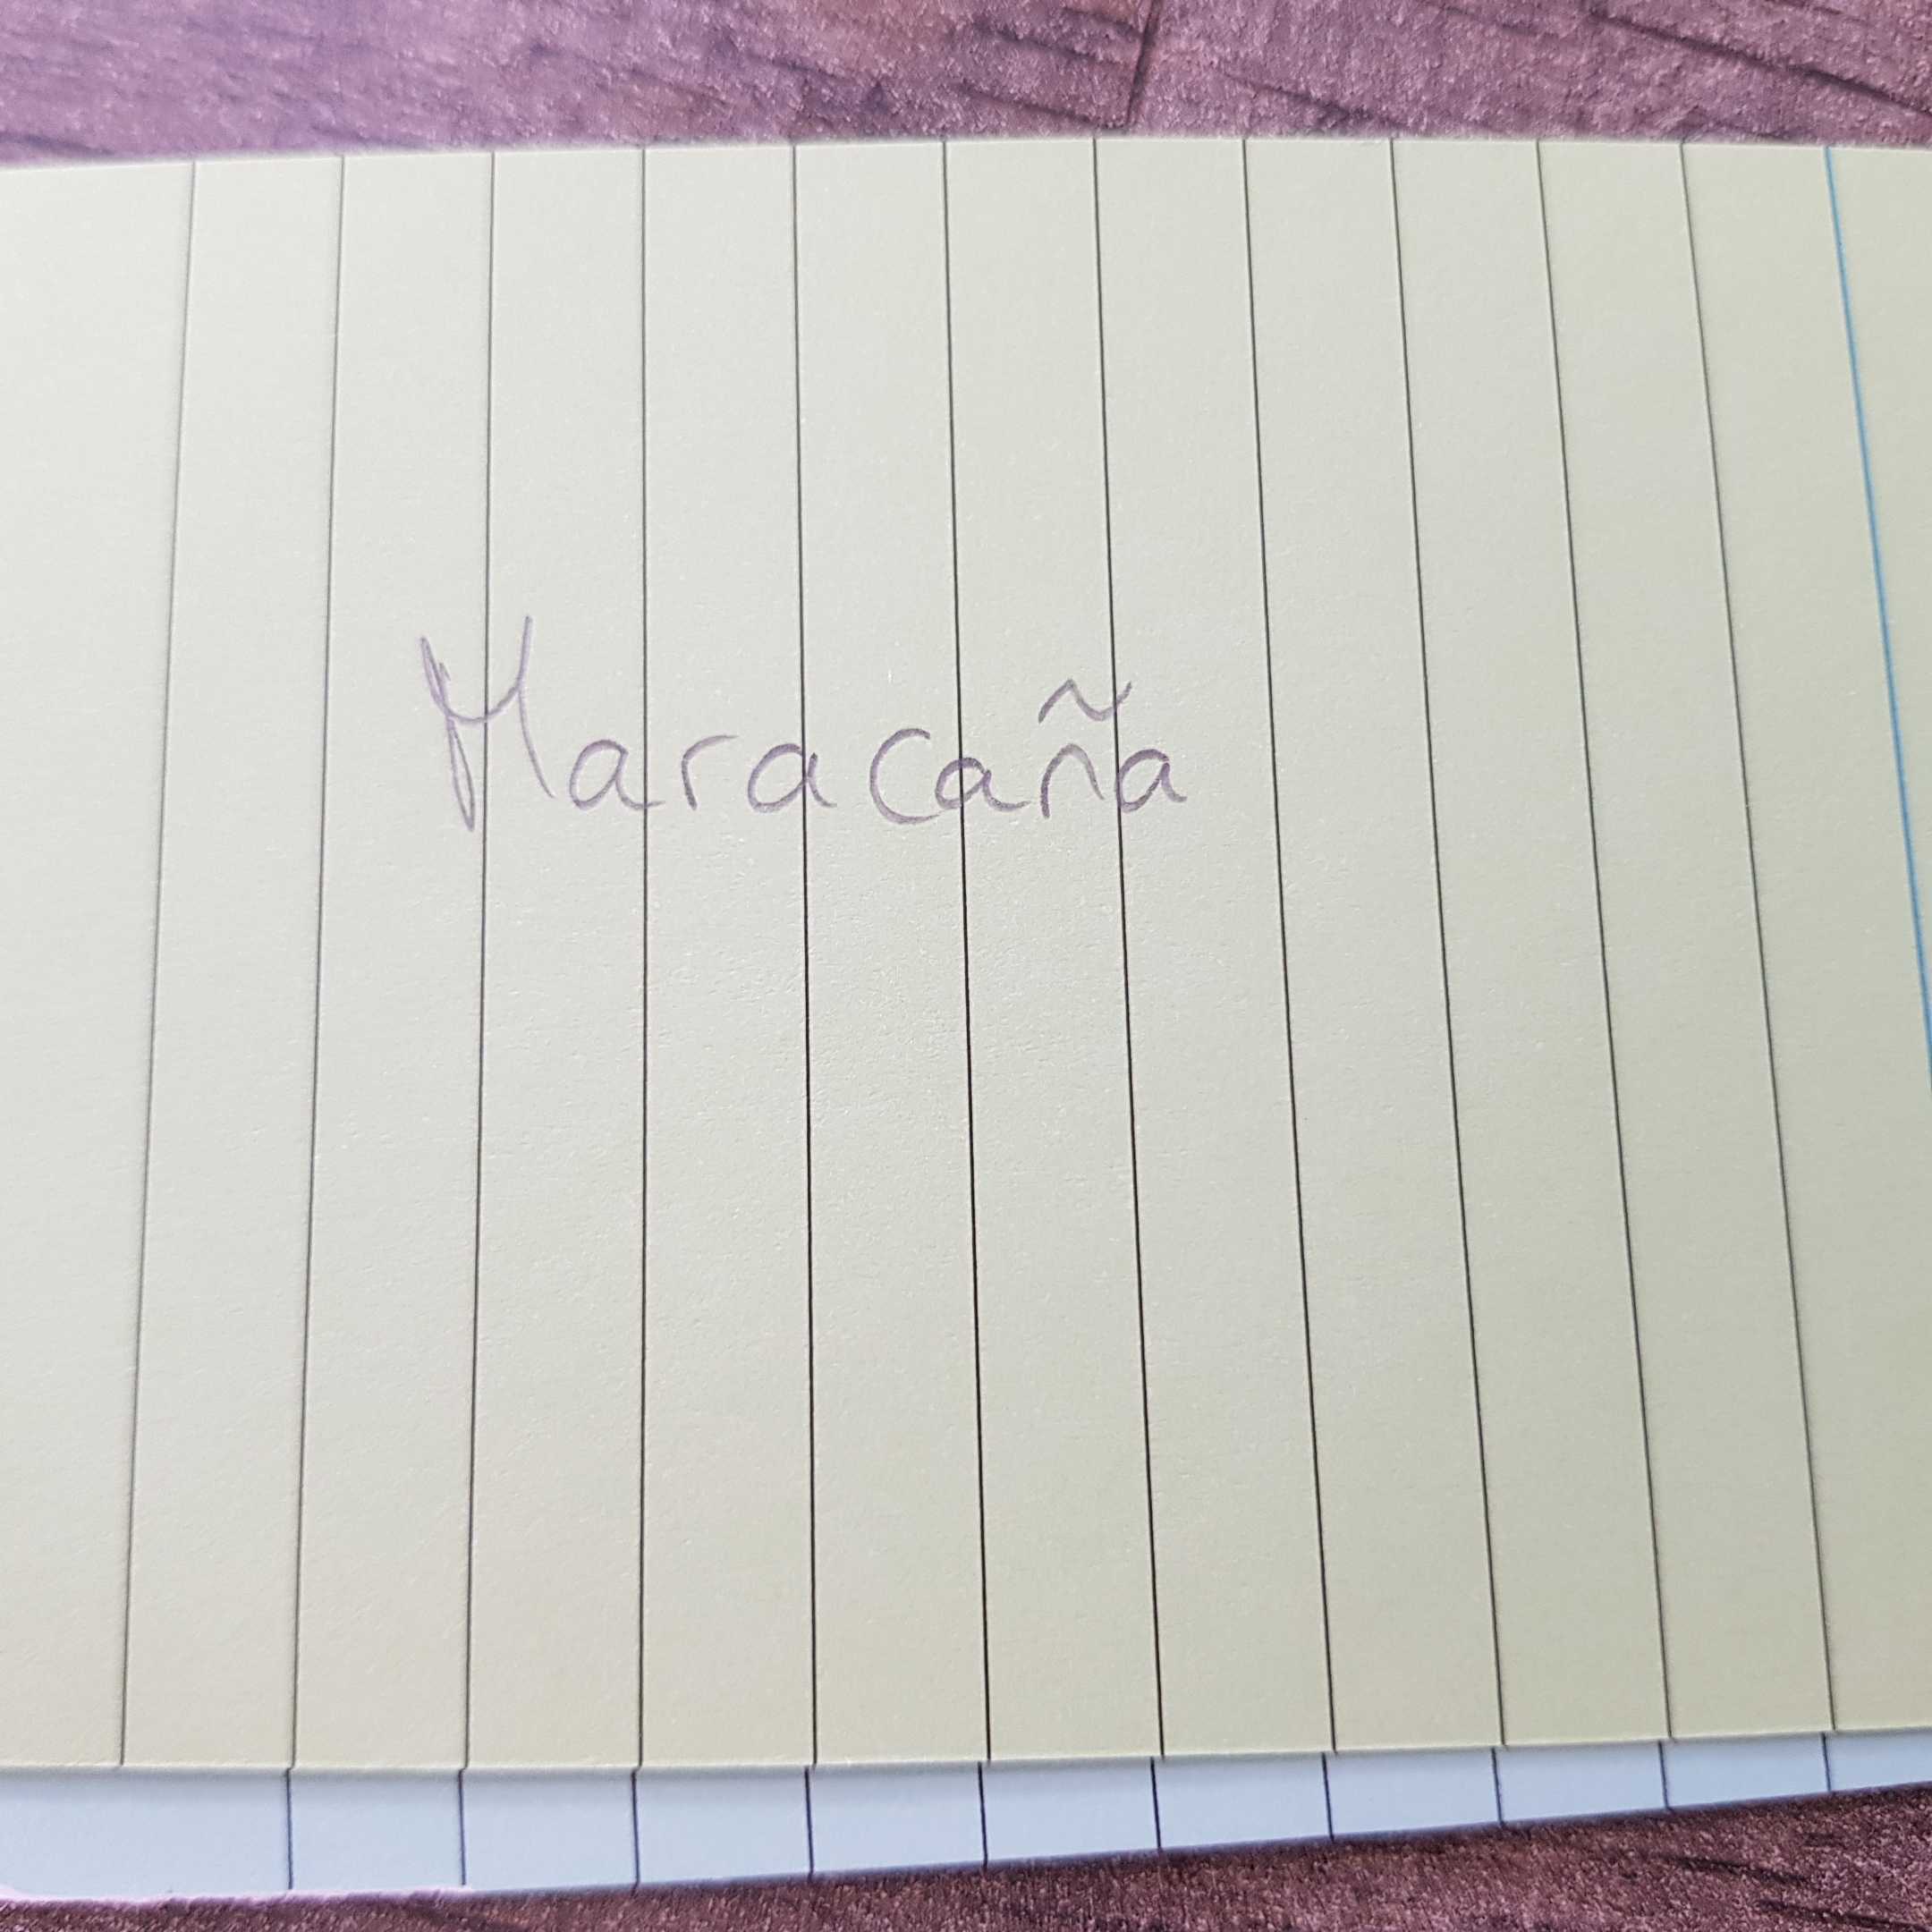 Maracaña